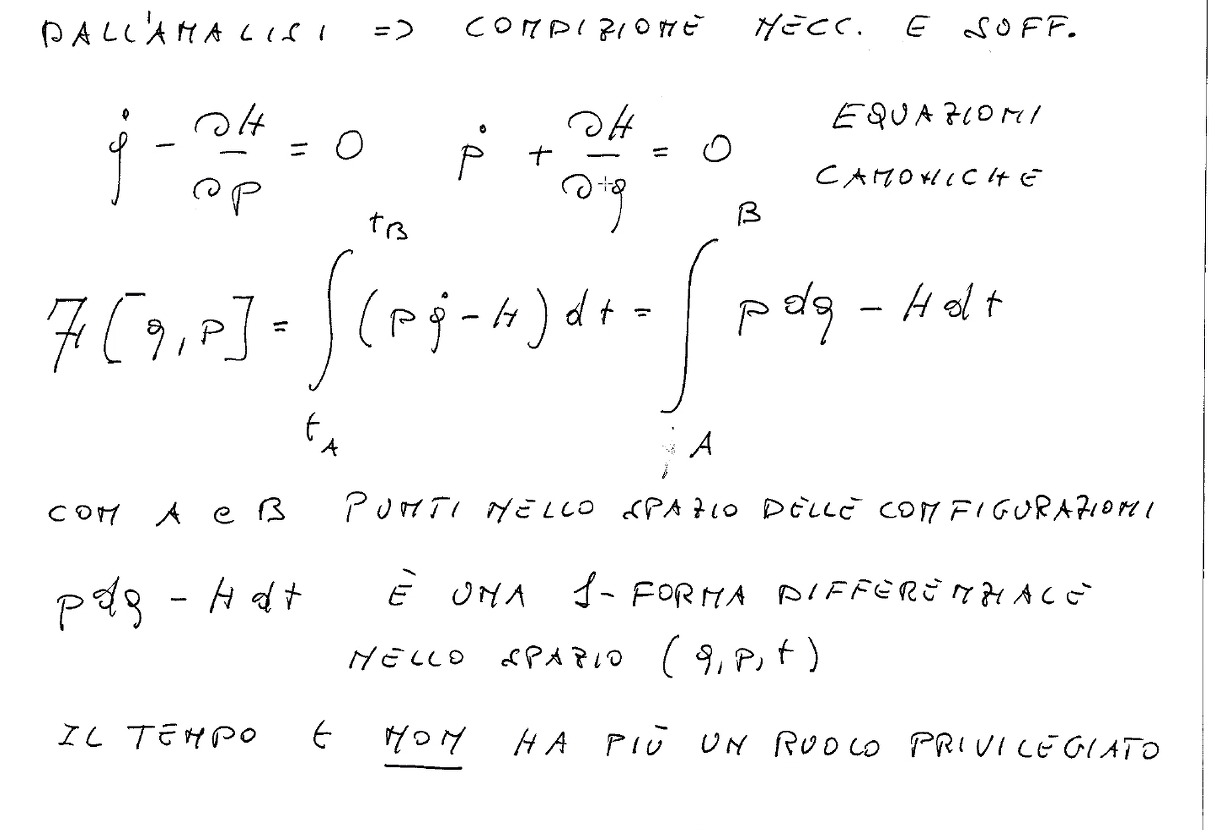 DALL'ANALISI => CONDIZIONE NECC. E SOFF.
q̇ - ∂H/∂p = 0 ṗ + ∂H/∂q = 0 EQUAZIONI CANONICHE
F[q,p] = ∫_{t_A}^{t_B} (pq̇ - H) dt = ∫_A^B p dq - H dt
CON A e B PUNTI NELLO SPAZIO DELLE CONFIGURAZIONI
p dq - H dt È UNA 1-FORMA DIFFERENZIALE
NELLO SPAZIO (q, p, t)
IL TEMPO t NON HA PIÙ UN RUOLO PRIVILEGIATO